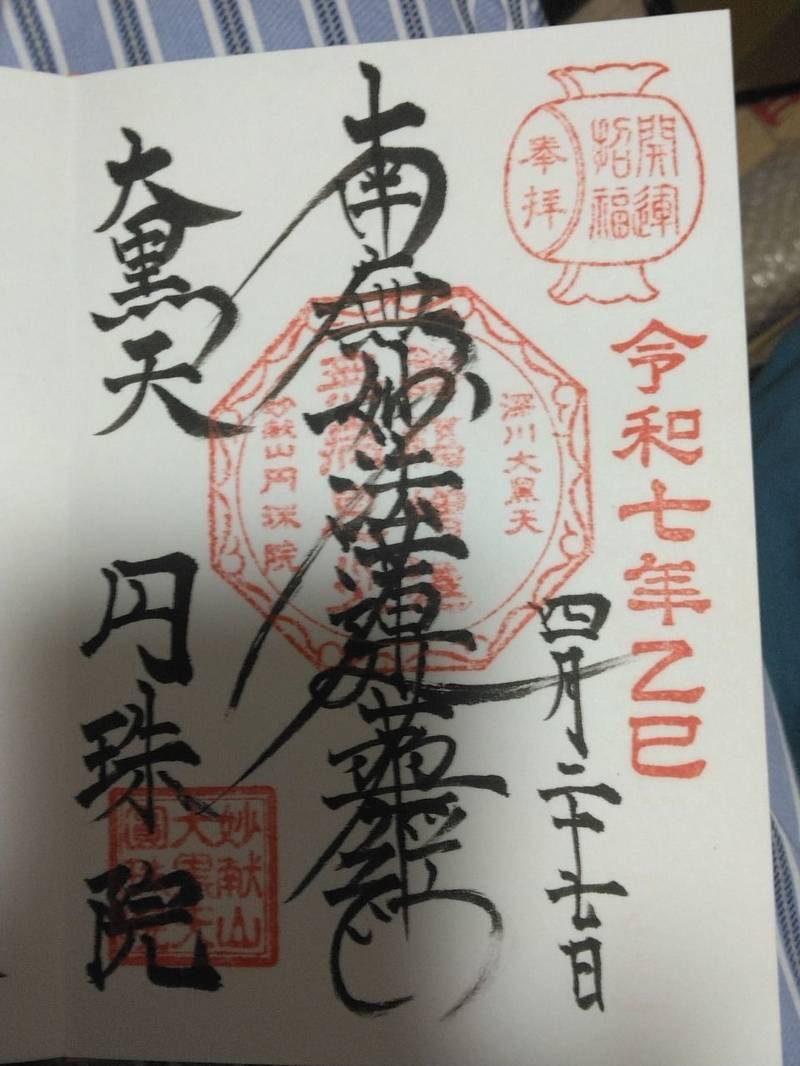 開運
招福
奉拝
令和七年乙巳
四月二十七日
南無妙法蓮華経
深川大黒天
妙献山円珠院
大黒天
円珠院
妙献山
大黒天